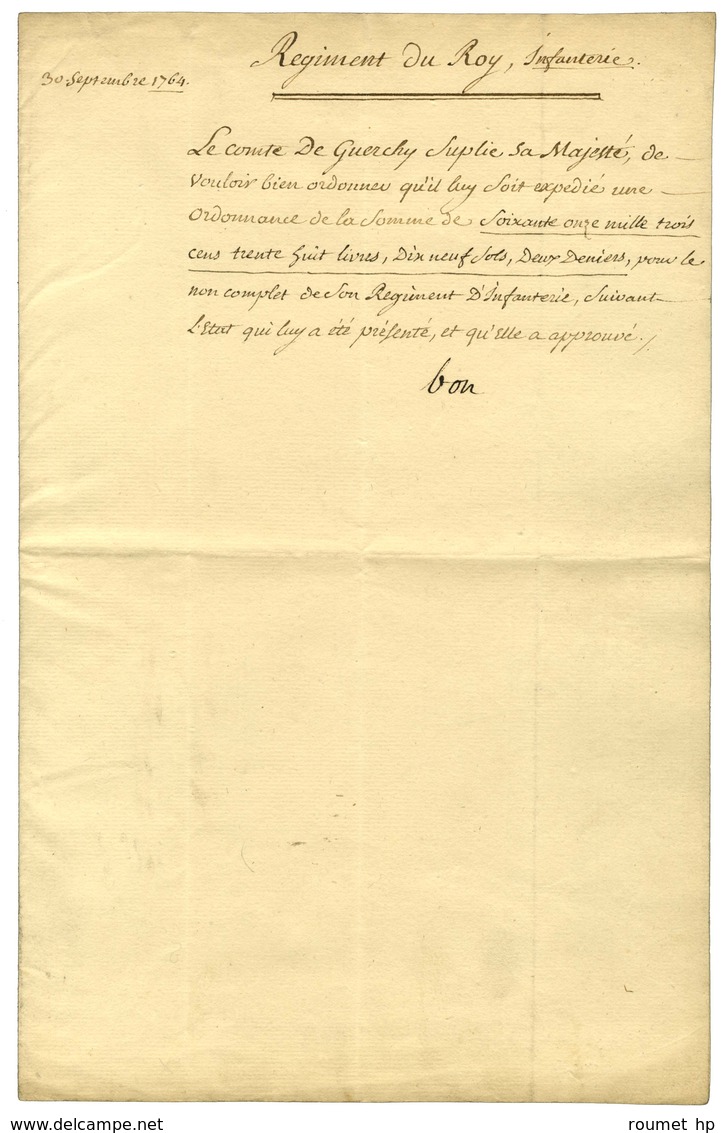 Regiment Du Roy, Infanterie.
30. Septembre 1764.
Le comte De Guerchy Suplie Sa Majesté, de
vouloir bien ordonner qu'il luy Soit expedié une
Ordonnance de la Somme de Soixante onze mille trois
cens trente huit livres, Dix neuf Sols, Deux Deniers, pour le
non complet de Son Regiment D'Infanterie, Suivant
L'Etat qui luy a été présenté, et qu'Elle a approuvé.
bon
www.delcampe.net
roumet hp